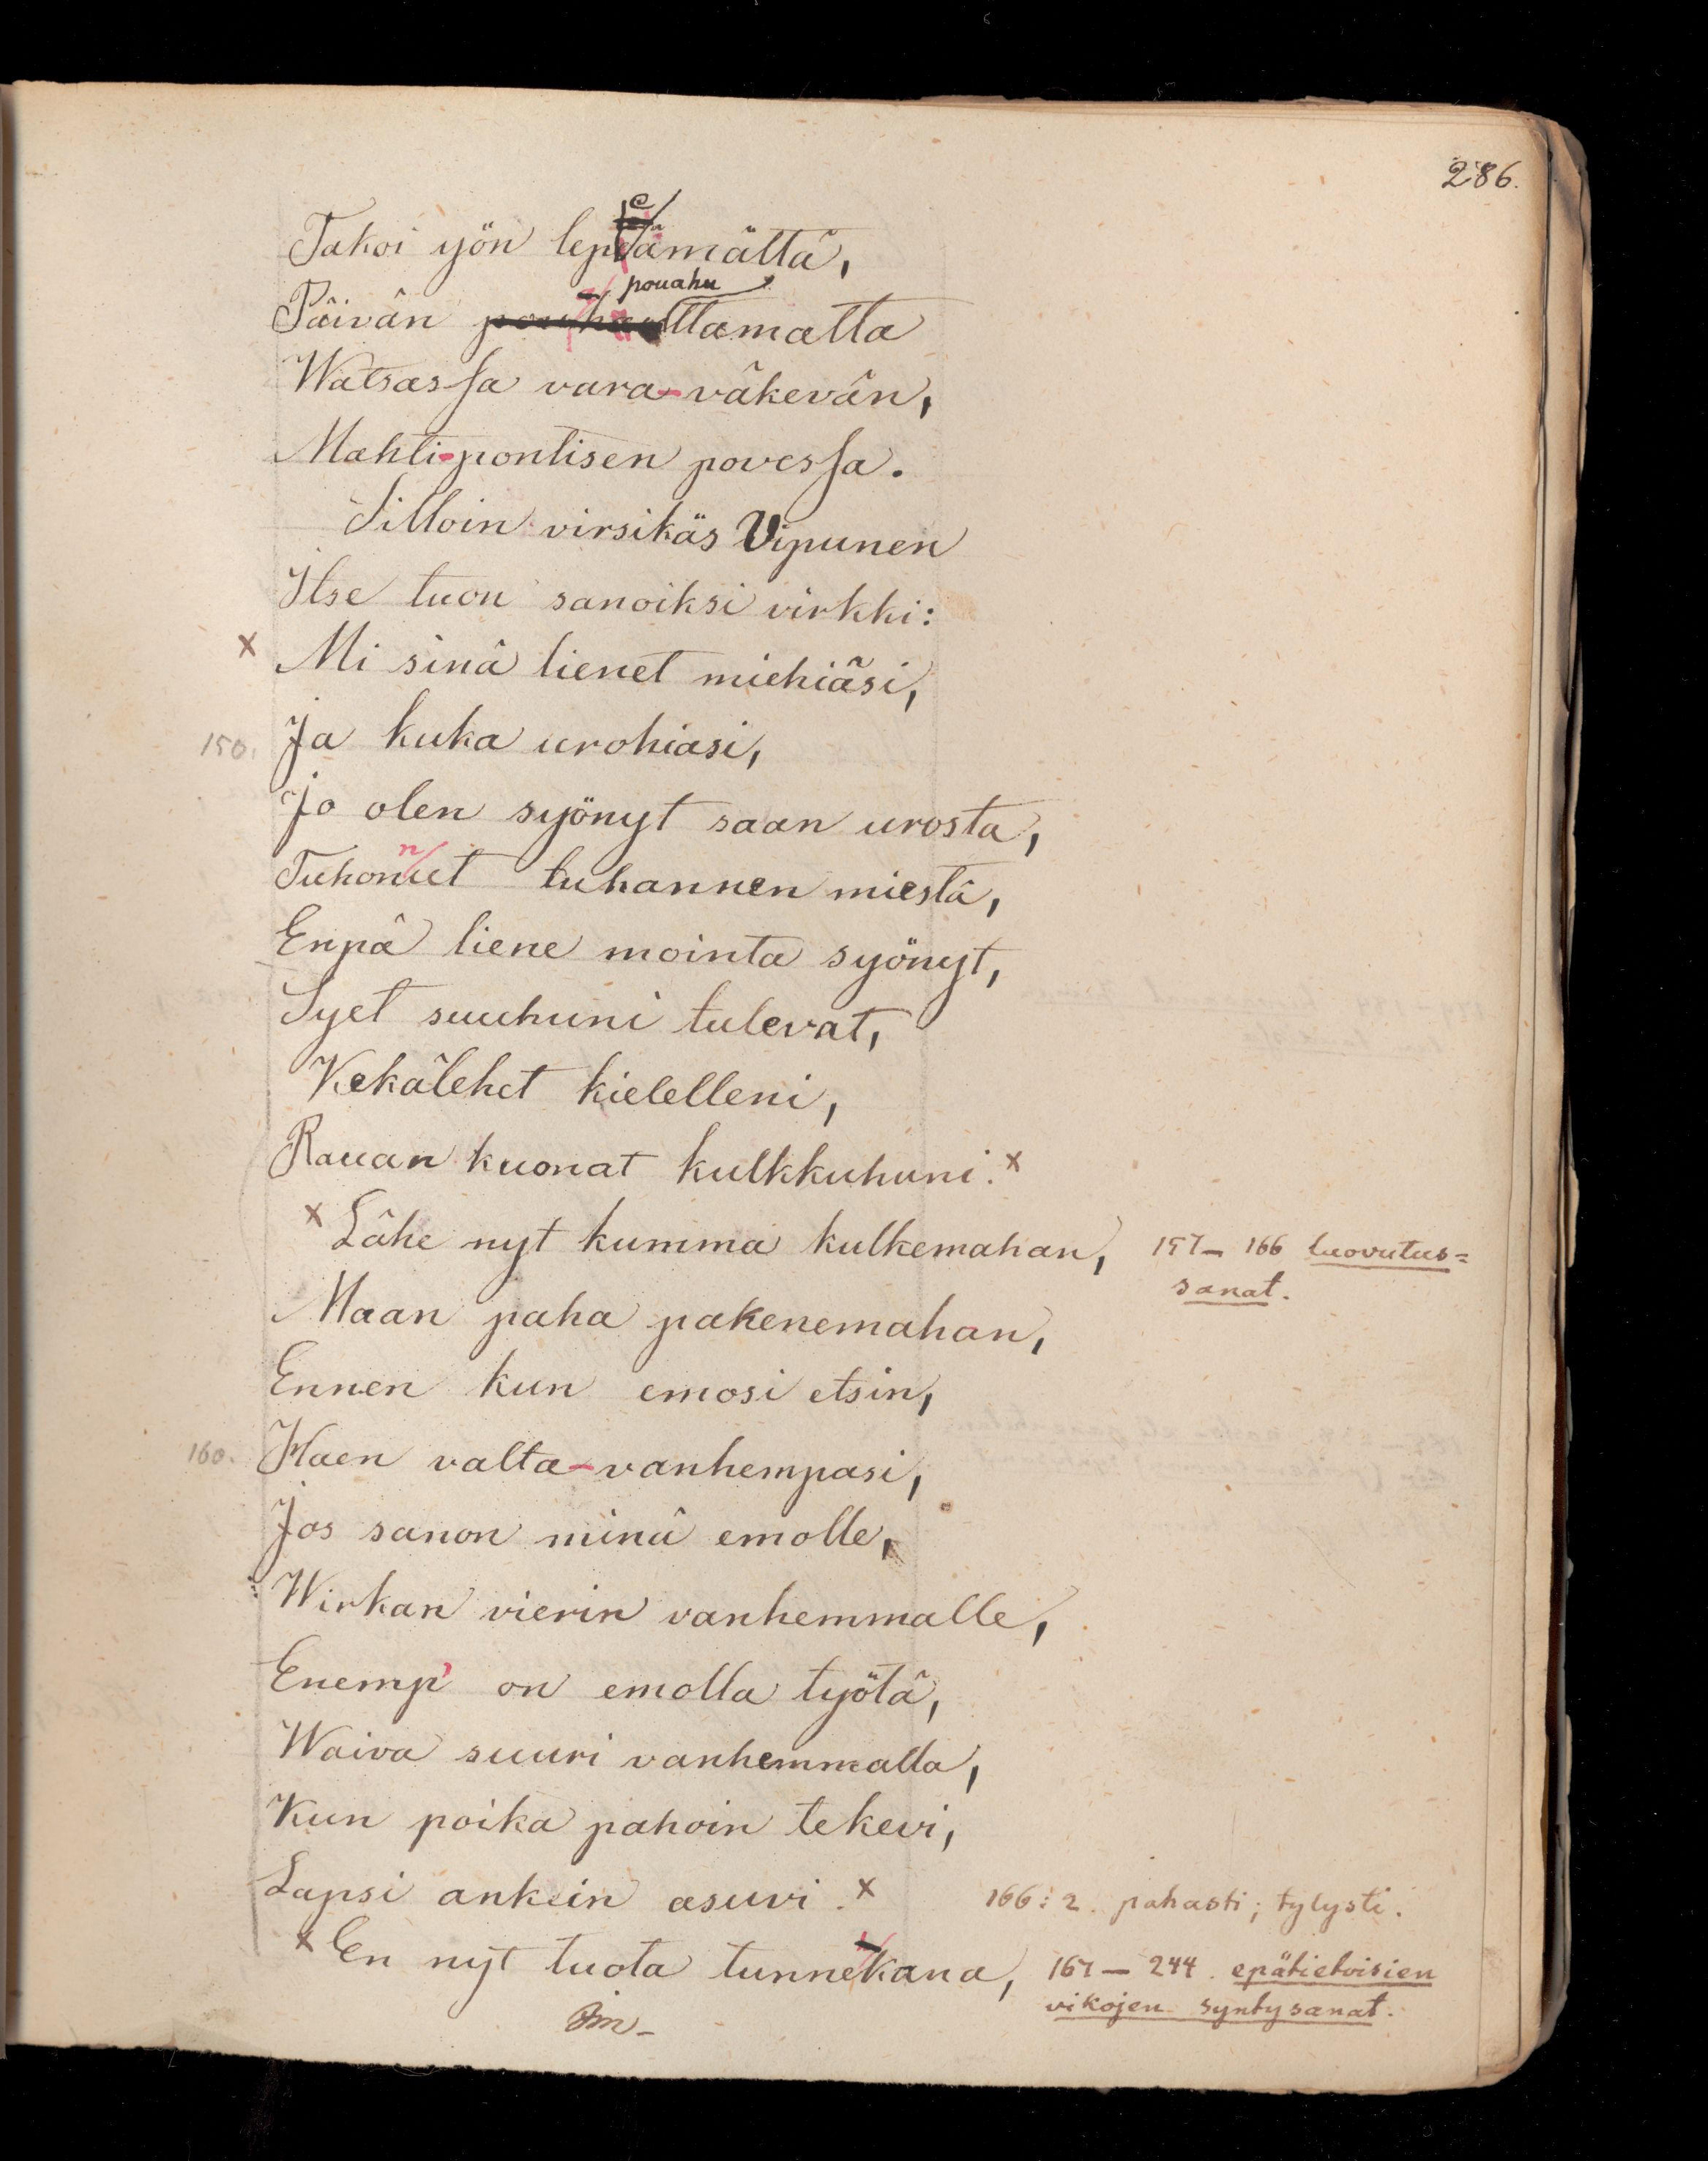 286.
Takoi yön lepeämättä,
pouahu
Päivän pouahuttamatta
Watsassa vara-väkevän,
Mahti-pontisen povessa.
Silloin virsikäs Vipunen
Itse tuon sanoiksi virkki:
x Mi sinä lienet miehiäsi,
150. Ja kuka urohiasi,
Jo olen syönyt saan urosta,
Tuhonnut tuhannen miestä,
Enpä liene mointa syönyt,
Syet suuhuni tulevat,
Kekälehet kielelleni,
Rauan kuonat kulkkuhuni. x
x Lähe nyt kumma kulkemahan, 157–166 luovutus=
sanat.
Maan paha pakenemahan,
Ennen kun emosi etsin,
160. Haen valta-vanhempasi,
Jos sanon minä emolle,
Wirkan vierin vanhemmalle,
Enemp' on emolla työtä,
Waiva suuri vanhemmalla,
Kun poika pahoin tekevi,
Lapsi ankein asuvi. x 166: 2. pahasti; tylysti.
x En nyt tuota tunnekana, 167–244. epätietoisien
vikojen syntysanat.